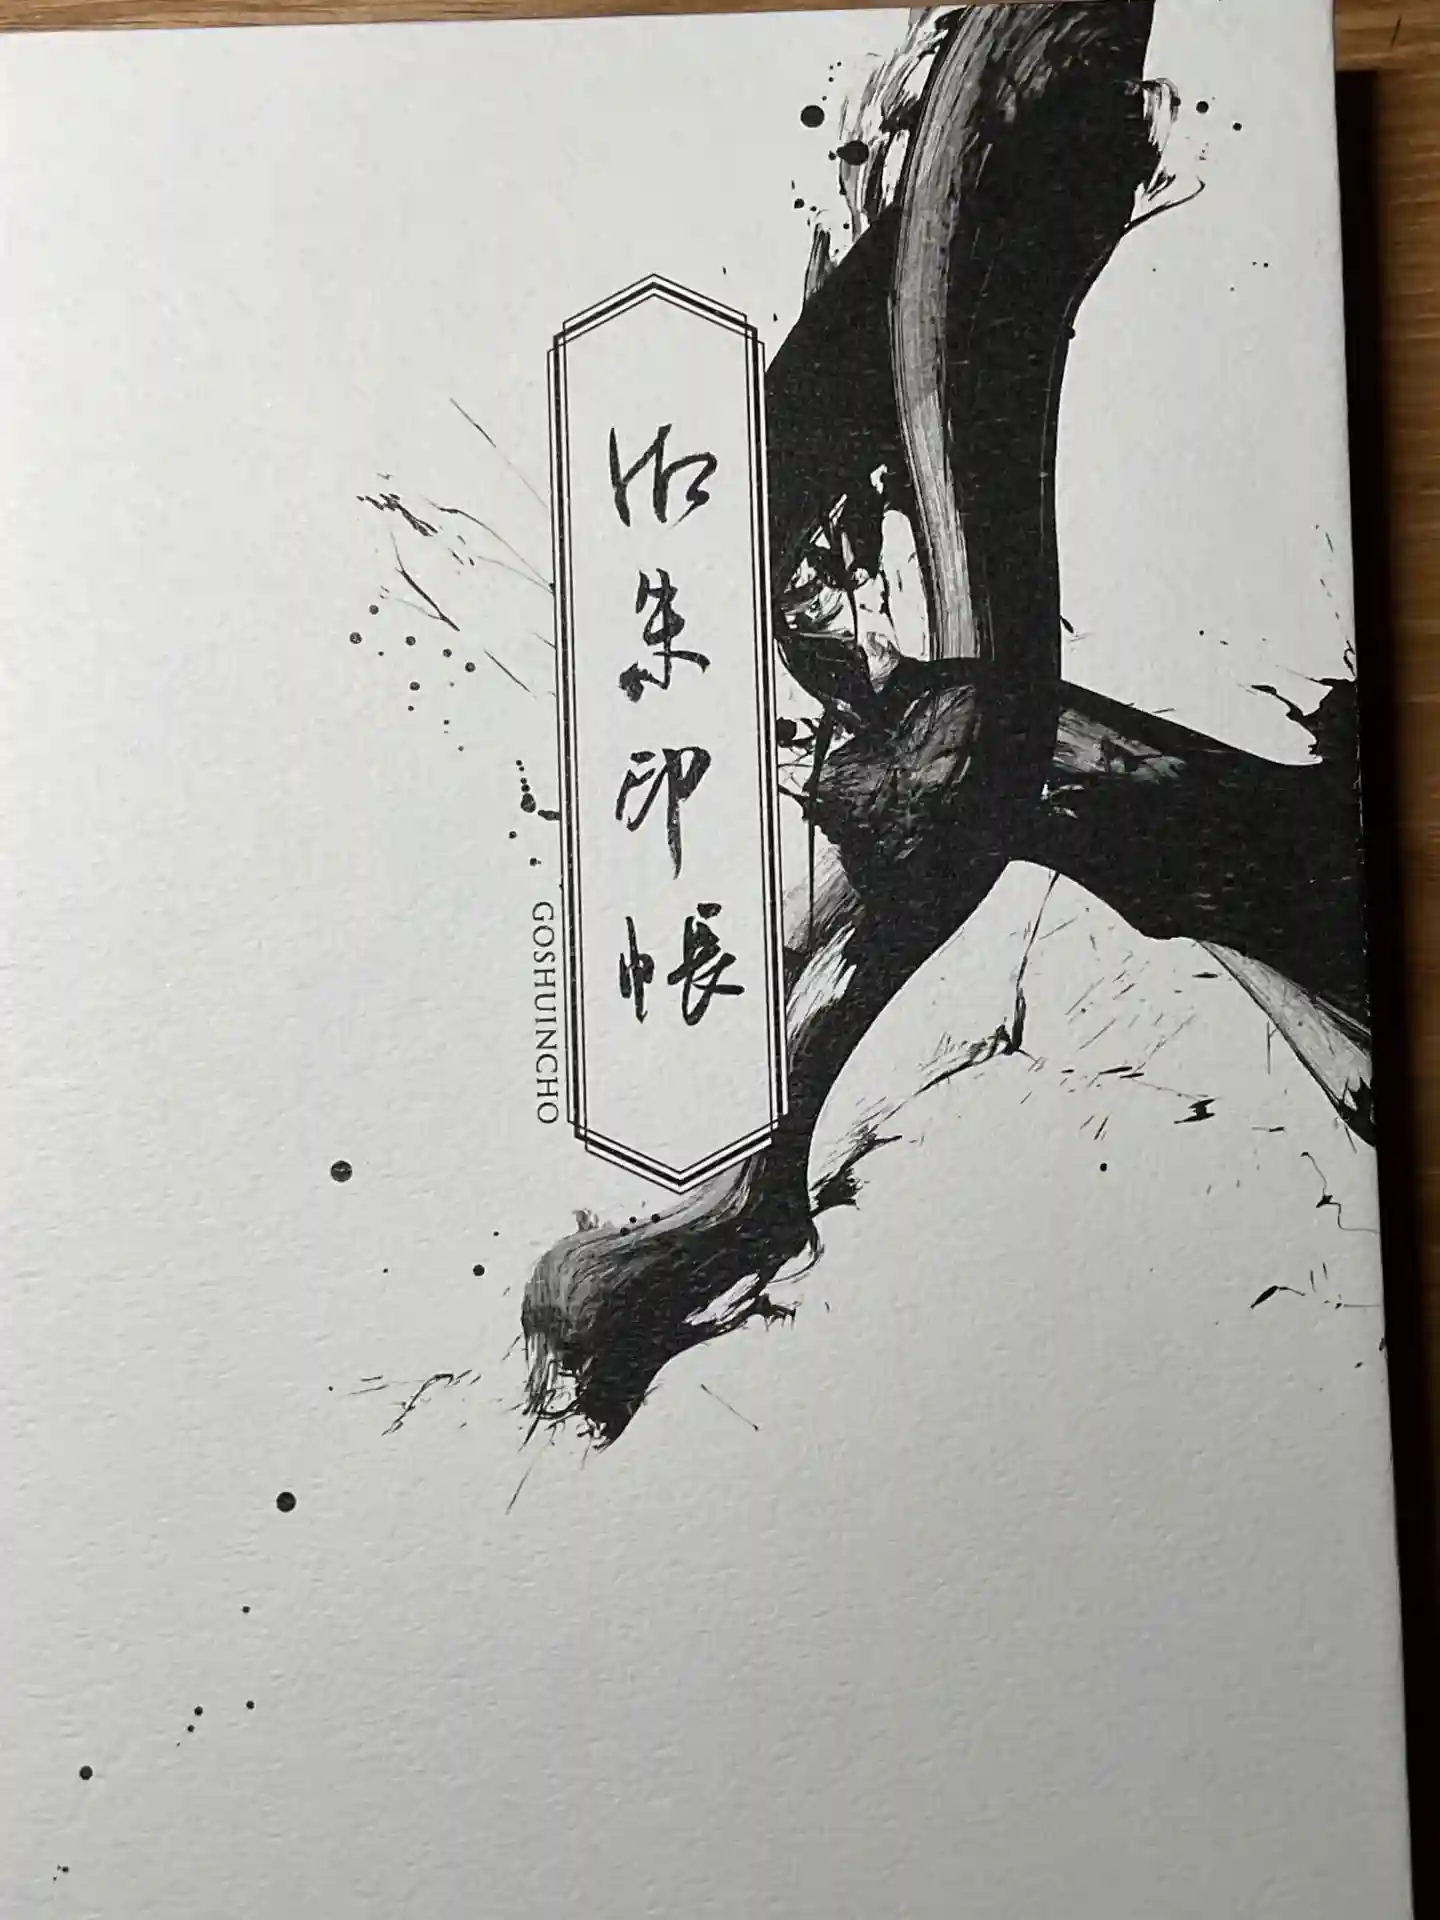 御朱印帳
GOSHUINCHO